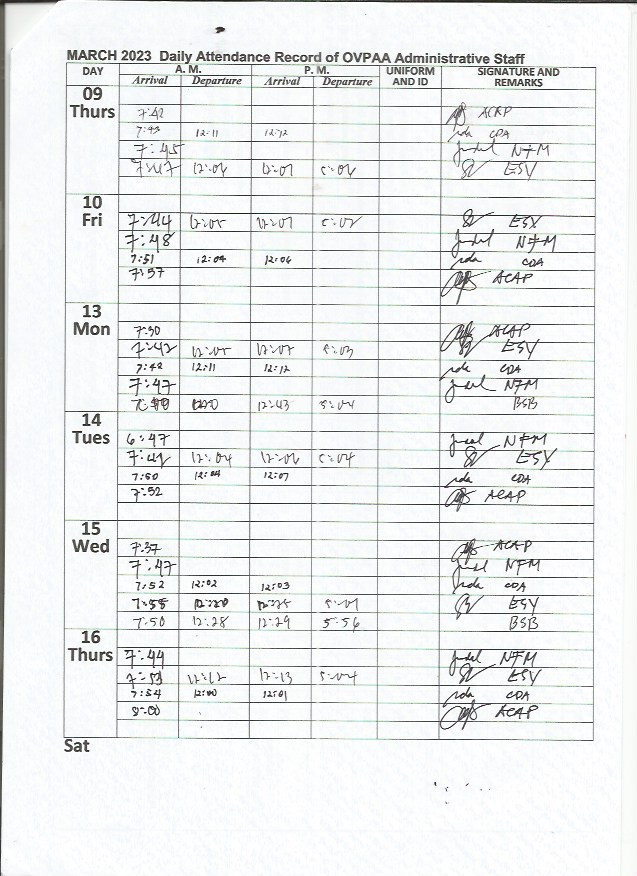 MARCH 2023 Daily Attendance Record of OVPAA Administrative Staff
DAY A. M. P. M. UNIFORM AND ID SIGNATURE AND REMARKS
Arrival Departure Arrival Departure
09 Thurs
7:42 ACAP
7:43 12:11 12:12 CDA
7:45 NFM
7:47 12:06 12:07 5:06 ESY
10 Fri
7:44 12:05 12:07 5:02 ESY
7:48 NFM
7:51 12:04 12:06 CDA
7:57 ACAP
13 Mon
7:30 ACAP
7:42 12:05 12:07 5:03 ESY
7:42 12:11 12:12 CDA
7:47 NFM
12:43 5:04 BSB
14 Tues
6:47 NFM
7:42 12:04 12:06 5:04 ESY
7:50 12:04 12:07 CDA
7:52 ACAP
15 Wed
7:37 ACAP
7:47 NFM
7:52 12:02 12:03 CDA
7:55 5:01 ESY
7:50 12:28 12:29 5:56 BSB
16 Thurs
7:44 NFM
7:53 12:12 12:13 5:04 ESY
7:54 12:00 12:01 CDA
8:00 ACAP
Sat